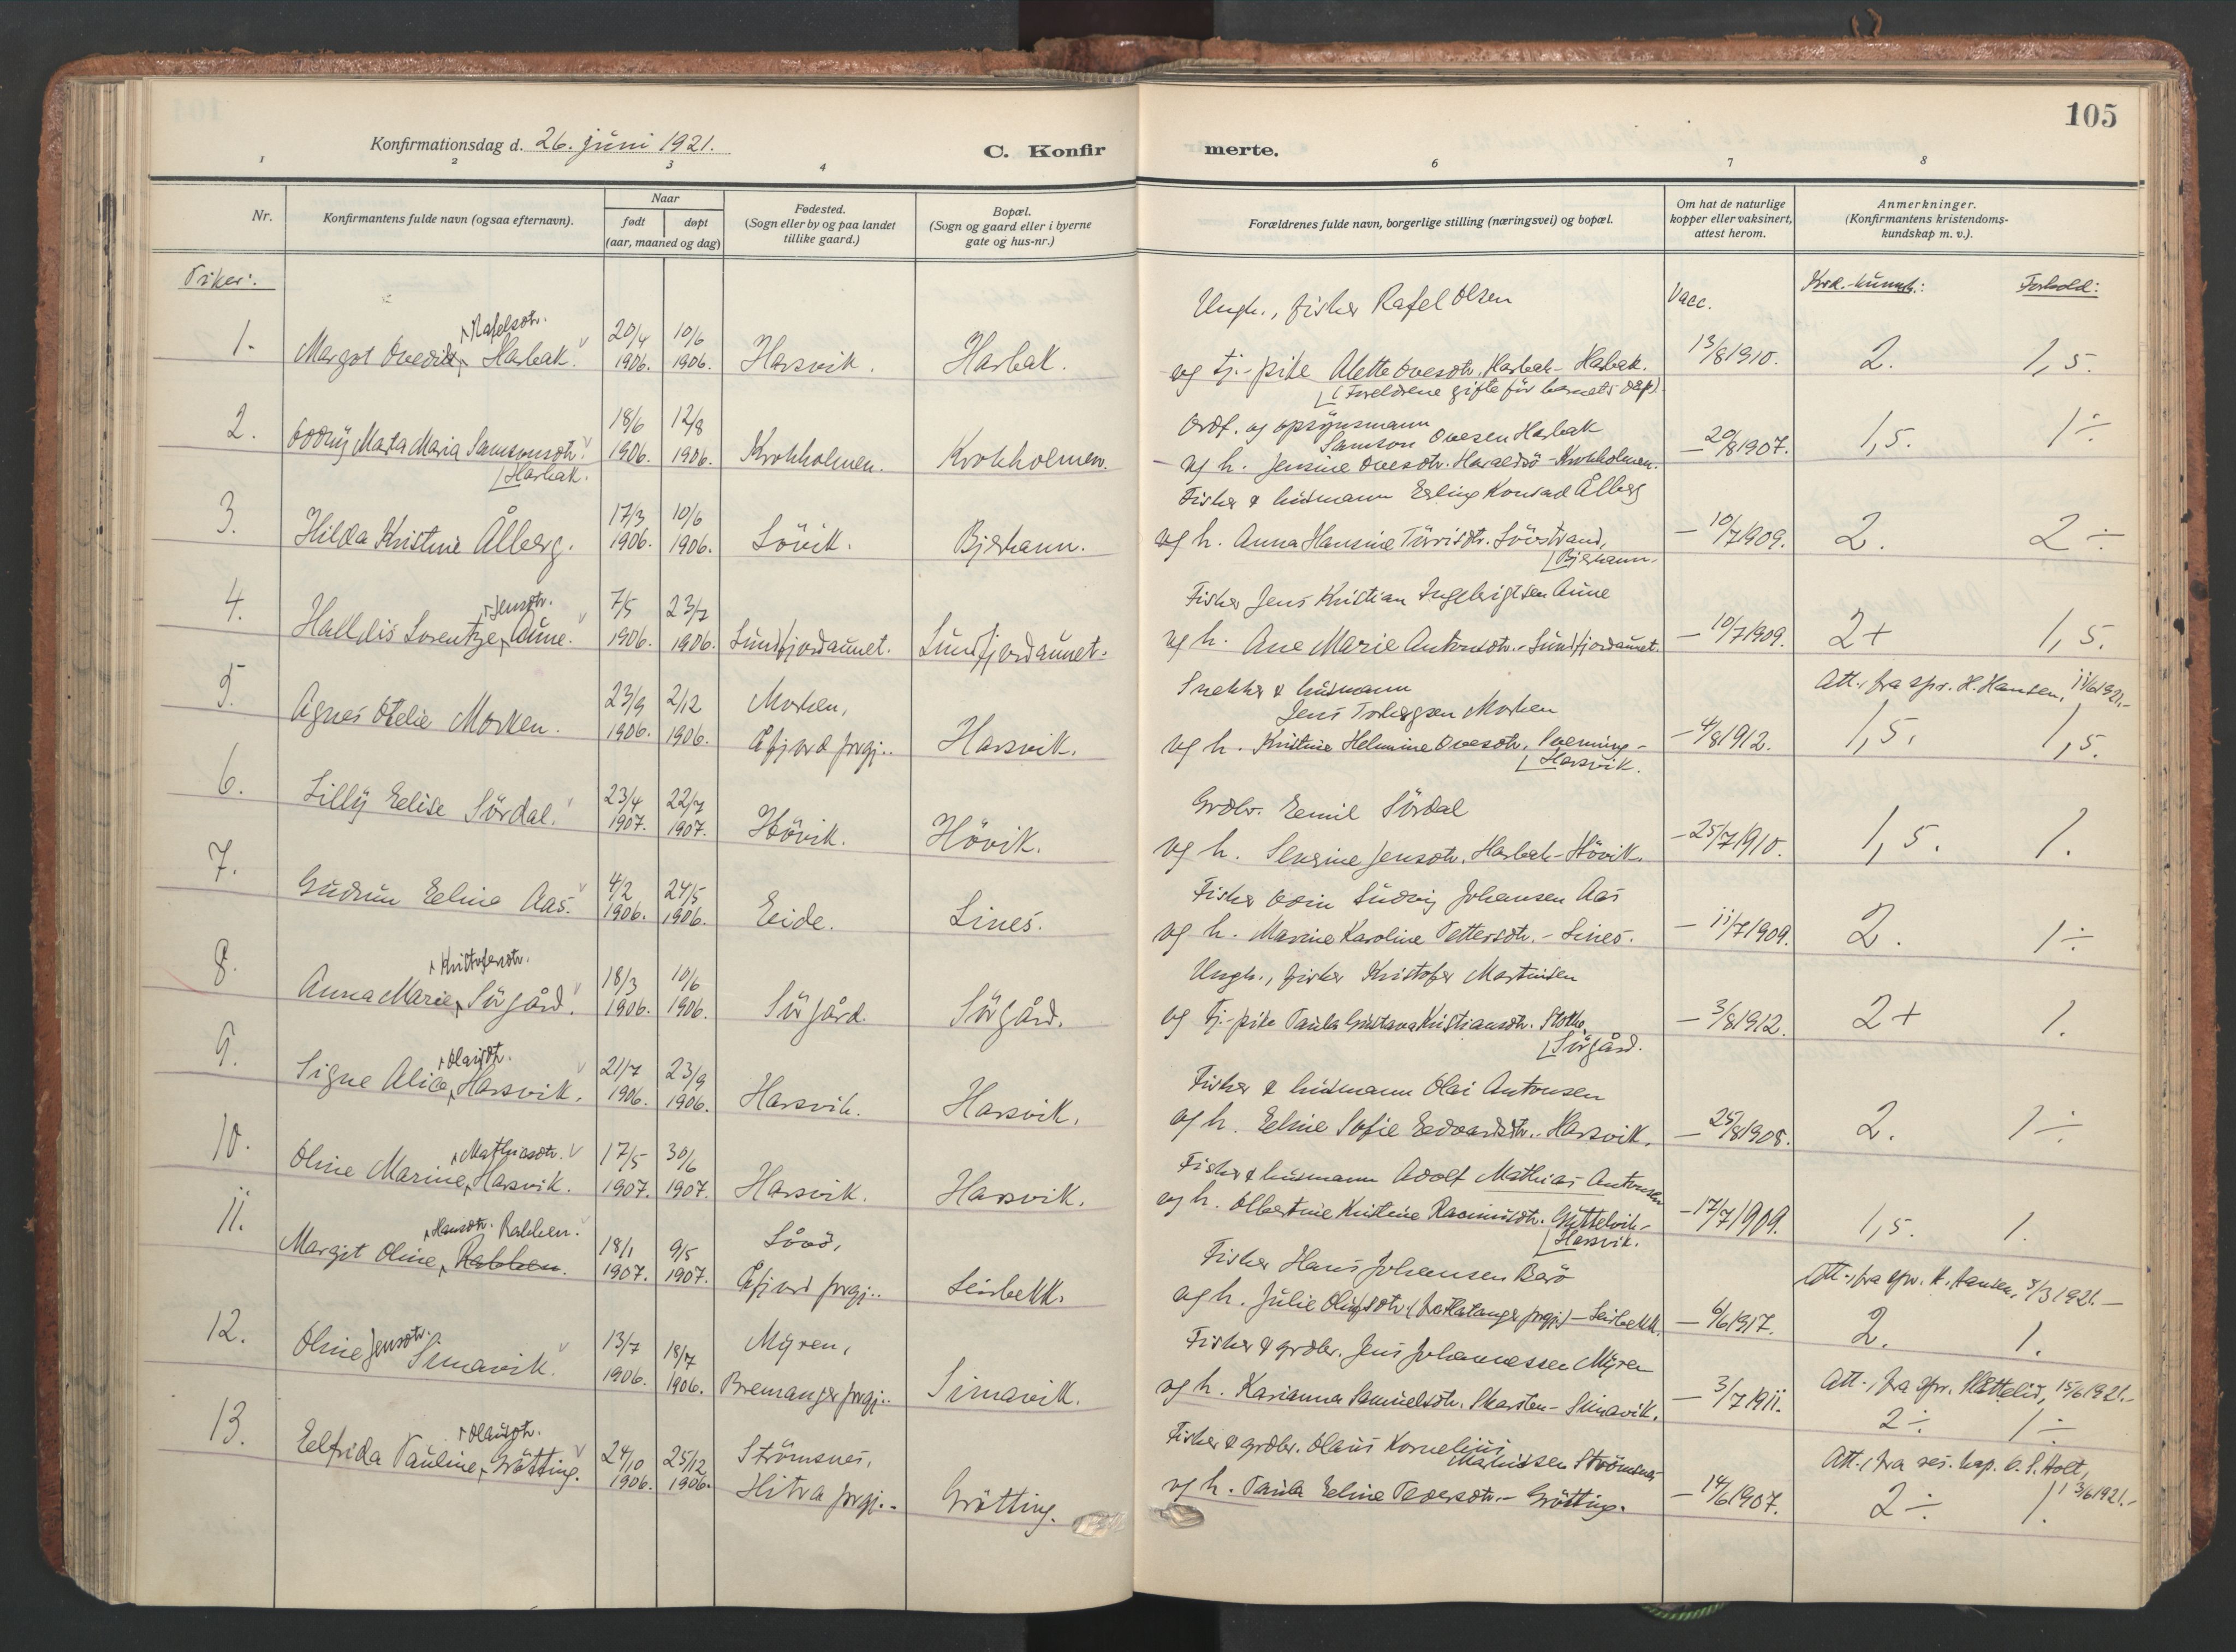 105
Konfirmationsdag d. 26. juni 1921.
C. Konfir merte.
1 2 3 4 6 7 8
Nr.
Konfirmantens fulde navn (ogsaa efternavn).
Naar
født døpt
(aar, maaned og dag)
Fødested.
(Sogn eller by og paa landet
tillike gaard.)
Bopæl.
(Sogn og gaard eller i byerne
gate og hus-nr.)
Forældrenes fulde navn, borgerlige stilling (næringsvei) og bopæl.
Om hat de naturlige
kopper eller vaksinert,
attest herom.
Anmerkninger.
(Konfirmantens kristendoms-
kundskap m. v.).
Piker:
Vacc.
Forhold:
Rafelsdtr.
Ungk., fisker Rafel Olsen
1. Margot Harbak. 20/4 1906. 10/6 1906. Harsvik. Harbak.
og tj.-pike Alette Ovesdtr. Harbak - Harbak. 13/8 1910. 2. 1,5.
(Foreldrene gifte för barnets dåp).
Ordf. og opsynsmann
Samson Ovesen Harbak
2. Oddny Marta Maria Samsonsdtr. 18/6 1906. 12/8 1906. Krokholmen. Krokholmen.
Harbak.
og h. Jensine Ovesdtr. Haraldsö - Krokholmen. — 20/8 1907. 1,5. 1÷
Fisker & husmann Erling Konrad Ålberg
3. Hilda Kristine Ålberg. 17/3 1906. 10/6 1906. Sövik. Bjerkann.
og h. Anna Hansine Sövstrand, — 10/7 1909. 2. 2÷
Bjerkann.
Jensdtr.
Fisker Jens Kristian Ingebrigtsen Aune
4. Halldis Lorentze Aune. 7/5 1906. 23/7 1906. Sundfjordaunet. Sundfjordaunet.
og h. Ane Marie Antonsdtr. - Sundfjordaunet. — 10/7 1909. 2+ 1,5.
Snekker & husmann
Att. fra spr. H. Hansen, 11/6 1921.-
Jens Torbergsen Morken
5. Agnes Otelie Morken. 23/9 1906. 2/12 1906. Morken, Åfjord prgj.. Harsvik.
og h. Kristine Helmine Ovesdtr. - — 4/8 1912. 1,5. 1,5.
Harsvik.
Grdbr. Eemil Sördal
6. Lilly Eelise Sördal. 23/4 1907. 22/7 1907. Hövik. Hövik.
og h. Jensdtr. Harbak - Hövik. — 25/7 1910. 1,5. 1.
Fisker Odin Ludvig Johansen Aas
7. Gudrun Eeline Aas. 4/2 1906. 24/5 1906. Eide. Lines.
og h. Marine Karoline Pettersdtr. - Lines. — 11/7 1909. 2. 1÷
Kristofersdtr.
Ungk., fisker Kristofer Martinsen
8. Anna Marie Sörgård. 18/3 1906. 10/6 1906. Sörgård. Sörgård.
og tj.-pike Paula Gustava Kristiansdtr. — 3/8 1912. 2+ 1.
Sörgård.
Olaisdtr.
Fisker & husmann Olai Antonsen
9. Signe Alice Harsvik. 21/7 1906. 23/9 1906. Harsvik. Harsvik.
og h. Eeline Sofie Eedvardsdtr. - Harsvik. — 25/8 1908. 2. 1÷
Mathiasdtr.
Fisker & husmann Adolf Mathias Antonsen
10. Oline Marine Harsvik. 17/5 1907. 30/6 1907. Harsvik. Harsvik.
og h. Olbertine Kristine Rasmusdtr. Güttelvik - — 17/7 1909. 1,5. 1.
Harsvik.
Hansdtr. Rabben.
Fisker Hans Johansen Barö
Att. fra spr. H. Hansen, 5/3 1921.—
11. Margit Oline Rabben. 18/1 1907. 9/5 1907. Åfjord prgj.. Seisbekk.
og h. Julie Olufsdtr. (fra Flatanger prgj.) - Seisbekk. — 6/6 1917. 2. 1.
Jensdtr.
Fisker & grdbr. Jens Johannessen Myren
Att., fra spr. 15/6 1921.-
12. Oline Simavik. 13/7 1906. 18/7 1906. Myren, Bremanger prgj.. Simavik.
og h. Karianna Samuelsdtr. Skarsten - Simavik. — 3/7 1911. 2÷ 1÷
Olausdtr.
Fisker & grdbr. Olaus Kornelius
Strömsnes
Att., fra res. kap. O. S. Holt, 13/6 1921.-
13. Eelfrida Pauline Grötting. 24/10 1906. 25/12 1906. Strömsnes, Hitra prgj.. Grötting.
og h. Paula Eeline Pedersdtr. - Grötting. — 14/6 1907. 2÷ 1.